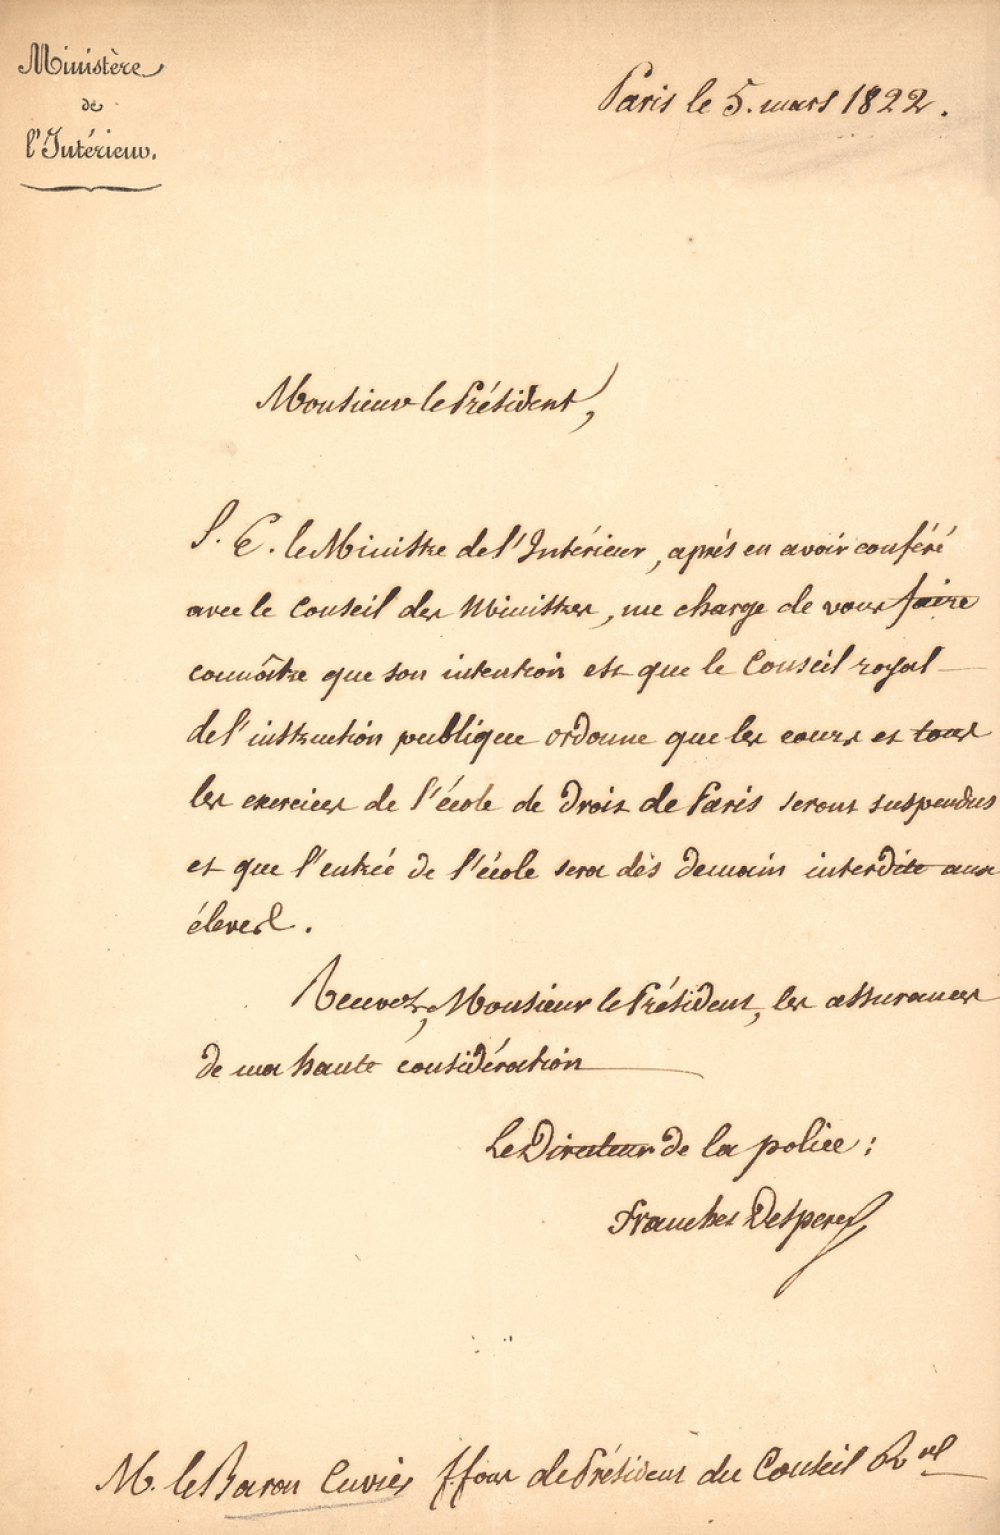 Ministère
de
l'Intérieur.
Paris le 5. mars 1822.
Monsieur le Président,
S. E. le Ministre de l'Intérieur, après en avoir conféré
avec le Conseil des Ministres, me charge de vous faire
connoître que son intention est que le Conseil royal
de l'instruction publique ordonne que les cours et tous
les exercices de l'école de Droit de Paris seront suspendus
et que l'entrée de l'école sera dès demain interdite aux
éleves.
Recevez, Monsieur le Président, les assurances
de ma haute considération
Le Directeur de la police :
Franchet Desperey
M. le Baron Cuvier ff.ons de Président du Conseil Ryal